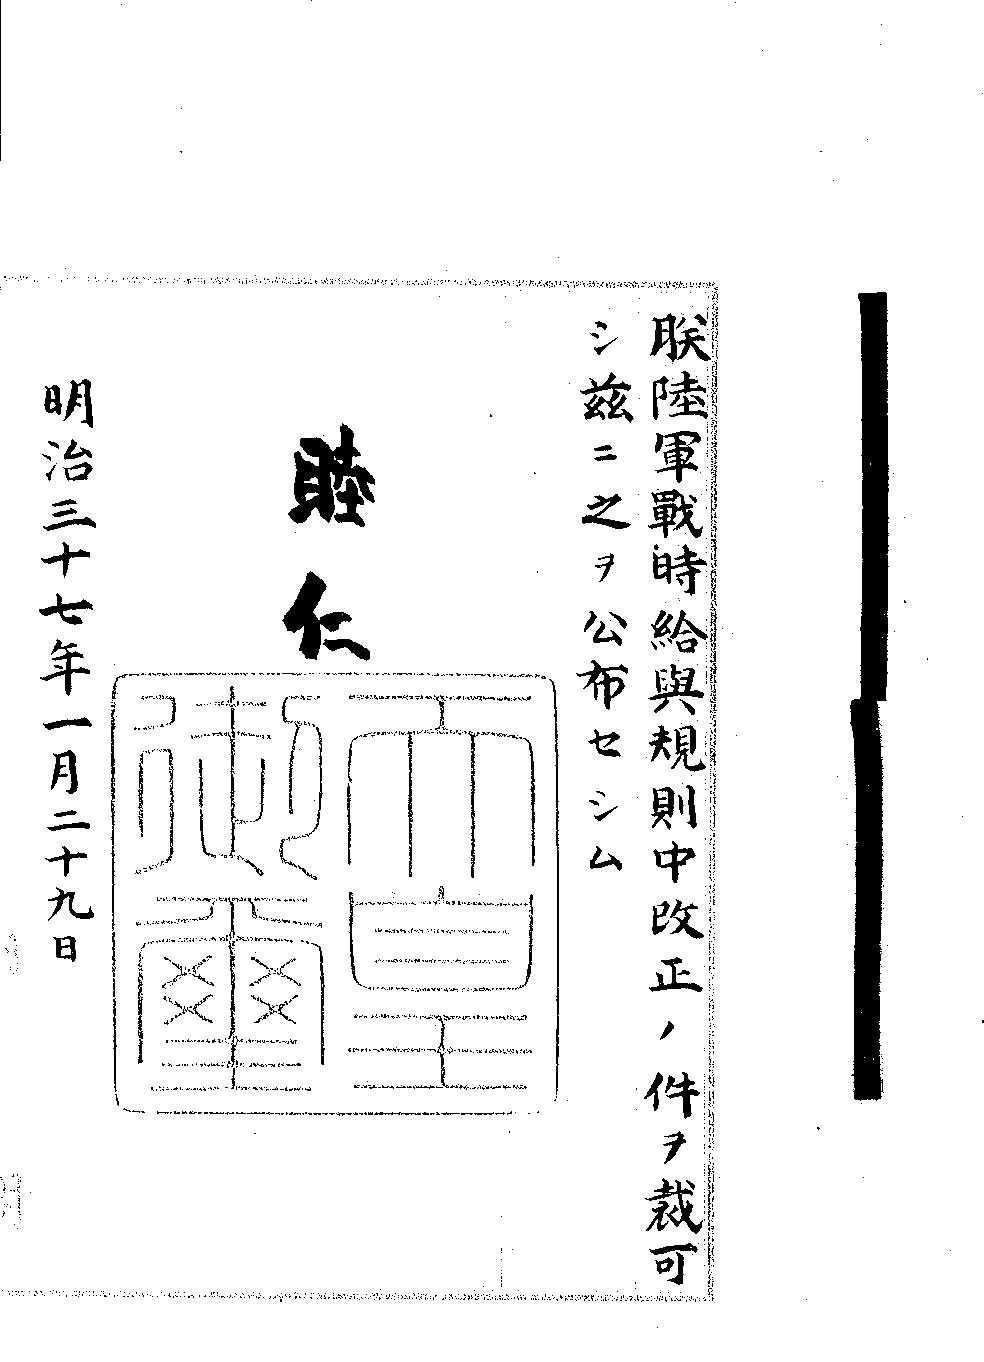 朕陸軍戰時給與規則中改正ノ件ヲ裁可
シ茲ニ之ヲ公布セシム
睦仁
天皇御璽
明治三十七年一月二十九日